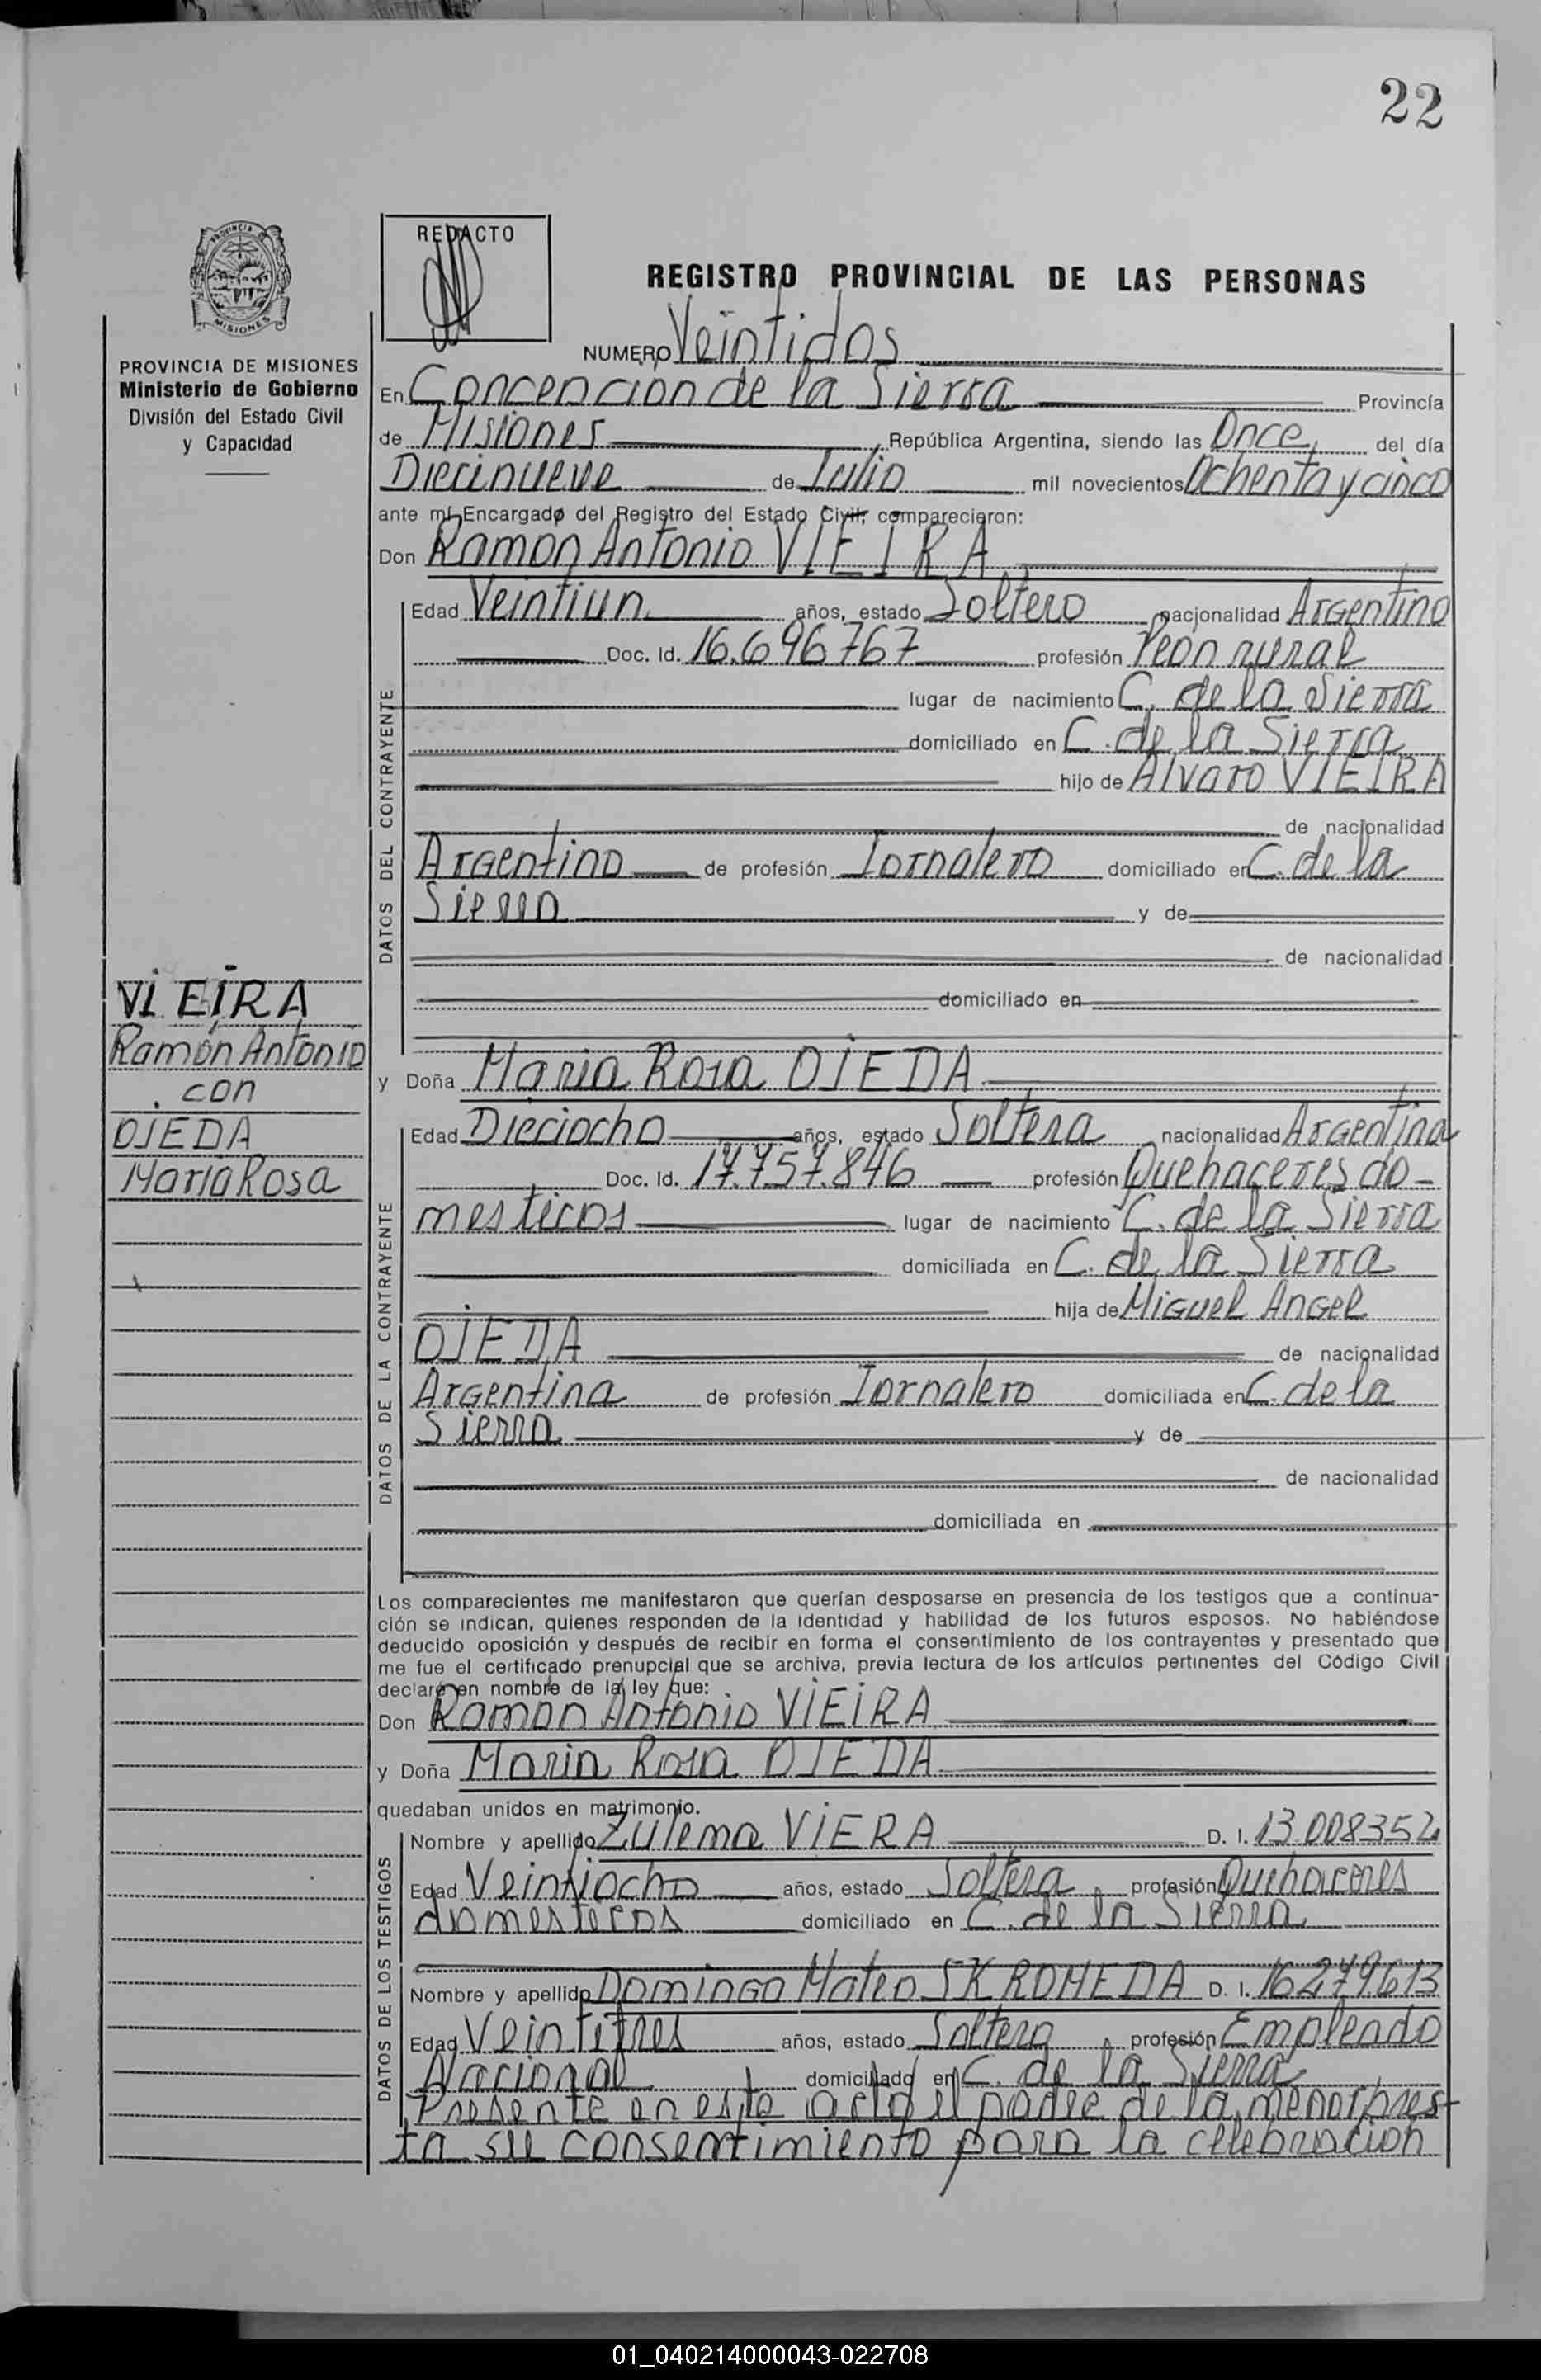 22
REDACTO
REGISTRO PROVINCIAL DE LAS PERSONAS
PROVINCIA
MISIONES
PROVINCIA DE MISIONES
Ministerio de Gobierno
División del Estado Civil
y Capacidad
NUMERO Veintidos
En Concepcion de la Sierra Provincia
de Misiones, República Argentina, siendo las Once, del día
Diecinueve de Julio mil novecientos Ochenta y cinco
ante mí Encargado del Registro del Estado Civil, comparecieron:
Don Ramon Antonio VIEIRA
DATOS DEL CONTRAYENTE
Edad Veintiun años, estado Soltero nacionalidad Argentino
Doc. Id. 16.696767 profesión Peon rural
lugar de nacimiento C. de la Sierra
domiciliado en C. de la Sierra
hijo de Alvaro VIEIRA
de nacionalidad
Argentino de profesión Jornalero domiciliado en C. de la
Sierra y de
de nacionalidad
domiciliado en
VIEIRA
Ramón Antonio
con
OJEDA
María Rosa
y Doña Maria Rosa OJEDA
DATOS DE LA CONTRAYENTE
Edad Dieciocho años, estado Soltera nacionalidad Argentina
Doc. Id. 17.757.846 profesión Quehaceres do-
mesticos lugar de nacimiento C. de la Sierra
domiciliada en C. de la Sierra
hija de Miguel Angel
OJEDA de nacionalidad
Argentina de profesión Jornalero domiciliada en C. de la
Sierra y de
de nacionalidad
domiciliada en
Los comparecientes me manifestaron que querían desposarse en presencia de los testigos que a continua-
ción se indican, quienes responden de la identidad y habilidad de los futuros esposos. No habiéndose
deducido oposición y después de recibir en forma el consentimiento de los contrayentes y presentado que
me fue el certificado prenupcial que se archiva, previa lectura de los artículos pertinentes del Código Civil
declaré en nombre de la ley que:
Don Ramon Antonio VIEIRA
y Doña Maria Rosa OJEDA
quedaban unidos en matrimonio.
DATOS DE LOS TESTIGOS
Nombre y apellido Zulema VIERA D. I. 13.008352
Edad Veintiocho años, estado Soltera profesión Quehaceres
domesticos domiciliado en C. de la Sierra
Nombre y apellido Domingo Mateo SKROMEDA D. I. 16279.613
Edad Veintitres años, estado Soltero profesión Empleado
Nacional domiciliado en C. de la Sierra
Presente en este acto el padre de la menor pres-
ta su consentimiento para la celebracion
01_040214000043-022708